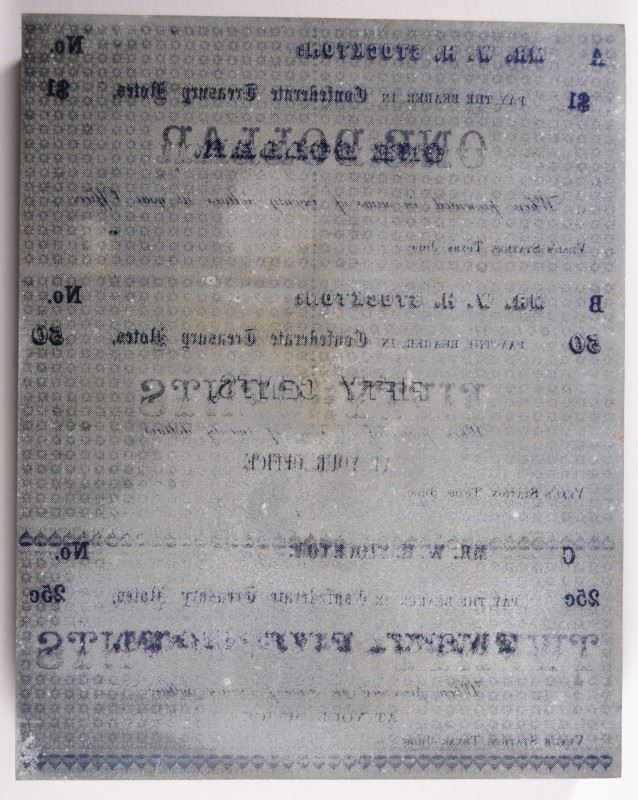 A MR. W. H. STOCKTON: No.
$1 PAY THE BEARER, IN Confederate Treasury Notes, $1
ONE DOLLAR
ONE DOLLAR
When presented in sums of twenty dollars at your Office.
Station, Texas, June,
B MR. W. H. STOCKTON: No.
50 PAY THE BEARER, IN Confederate Treasury Notes, 50
FIFTY CENTS
When presented in sums of twenty dollars
AT YOUR OFFICE
Station, Texas, June,
C MR. W. H. No.
25c PAY THE BEARER IN Confederate Treasury Notes, 25c
TWENTY-FIVE CENTS
When presented in sums of twenty dollars
AT YOUR OFFICE
Station, Texas, June